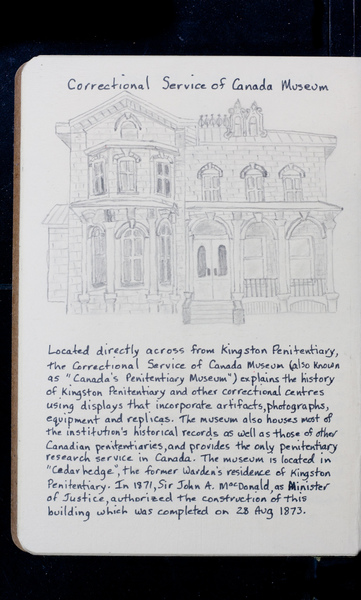 Correctional Service of Canada Museum
Located directly across from Kingston Penitentiary,
the Correctional Service of Canada Museum (also known
as "Canada's Penitentiary Museum") explains the history
of Kingston Penitentiary and other correctional centres
using displays that incorporate artifacts, photographs,
equipment and replicas. The museum also houses most of
the institution's historical records as well as those of other
Canadian penitentiaries, and provides the only penitentiary
research service in Canada. The museum is located in
"Cedarhedge", the former Warden's residence of Kingston
Penitentiary. In 1871, Sir John A. MacDonald, as Minister
of Justice, authorized the construction of this
building which was completed on 28 Aug 1873.